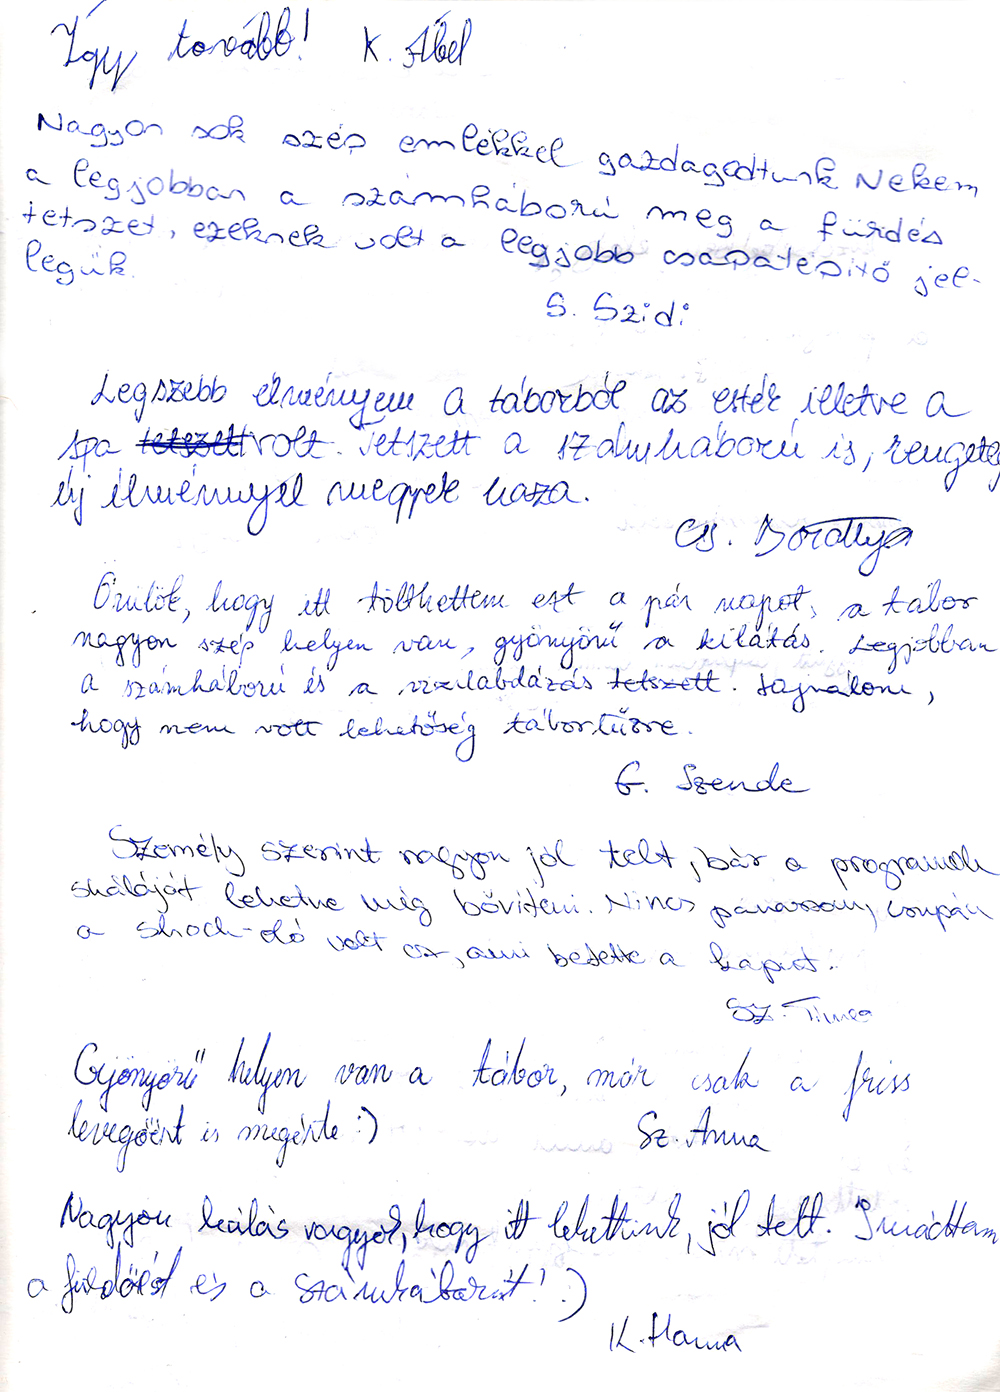 Így tovább! K. Ábel
Nagyon sok szép emlékkel gazdagodtunk Nekem
a legjobban a számháború meg a fürdés
tetszet, ezeknek volt a legjobb csapatépitő jel-
legük.
S. Szidi
Legszebb élményem a táborból az esték illetve a
spa volt. Tetszett a számháború is, rengeteg
új élménnyel megyek haza.
Cs. Borottya
Örülök, hogy itt tölthettem ezt a pár napot, a tábor
nagyon szép helyen van, gyönyörű a kilátás. Legjobban
a számháború és a vizilabdázás tetszett. Sajnálom,
hogy nem volt lehetőség tábortűzre.
G. Szende
Személy szerint nagyon jól telt, bár a programok
skáláját lehetne még bővíteni. Nincs panaszom, csupán
a shock-oló volt az, ami betette a kaput.
Sz. Timea
Gyönyörű helyen van a tábor, már csak a friss
levegőért is megérte :)
Sz. Anna
Nagyon hálás vagyok, hogy itt lehettünk, jól telt. Imádtam
a fürdőzést és a számháborút! :)
K. Hanna